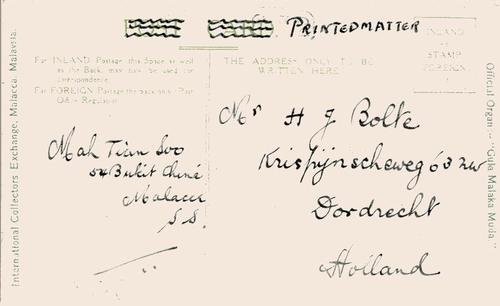 PRINTEDMATTER
INLAND
STAMP
FOREIGN
For INLAND Postage this Space as well
as the Back, may now be used for
Correspondence.
For FOREIGN Postage the back only. Post
Office Regulations
THE ADDRESS ONLY TO BE
WRITTEN HERE
Mr H J Bolte
Krispijnscheweg 63 zw
Dordrecht
Holland
Mah Tian Soo
54 Bukit China
Malacca
S.S.
International Collectors Exchange, Malacca, Malaysia.
Official Organ: "Gula Malaka Muda."